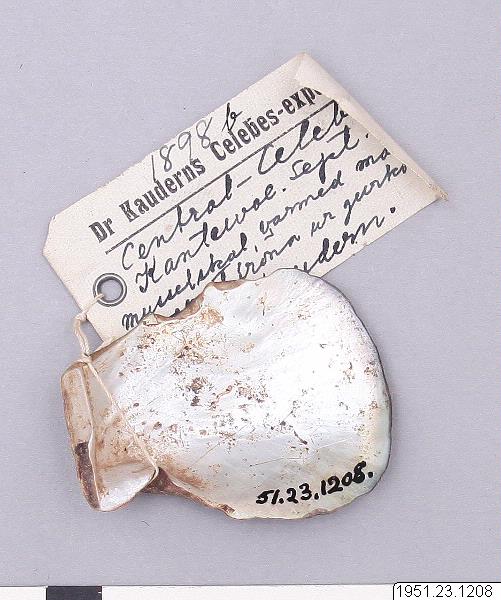 1898 b
Dr Kauderns Celebes-exp
Central-Celeb
Kantewoe. Sept.
musselskal, varmed ma
ur gurk
dern.
51.23.1208.
1951.23.1208